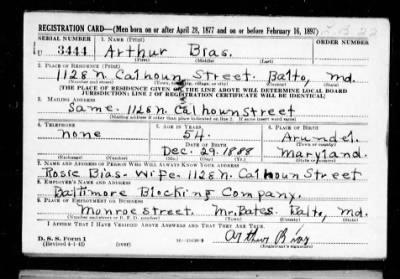 REGISTRATION CARD—(Men born on or after April 28, 1877 and on or before February 16, 1897)
SERIAL NUMBER 1. NAME (Print) ORDER NUMBER
U 3444 Arthur Bias.
(First) (Middle) (Last)
2. PLACE OF RESIDENCE (Print)
1126 N. Calhoun Street. Balto, Md.
(Number and street) (Town, township, village, or city) (County) (State)
[THE PLACE OF RESIDENCE GIVEN ON THE LINE ABOVE WILL DETERMINE LOCAL BOARD
JURISDICTION; LINE 2 OF REGISTRATION CERTIFICATE WILL BE IDENTICAL]
3. MAILING ADDRESS
Same. 1126 N. Calhoun Street
[Mailing address if other than place indicated on line 2. If same insert word same]
4. TELEPHONE 5. AGE IN YEARS 6. PLACE OF BIRTH
none 54. Arundel.
DATE OF BIRTH (Town or county)
Dec. 29. 1888 Maryland.
(Exchange) (Number) (Mo.) (Day) (Yr.) (State or country)
7. NAME AND ADDRESS OF PERSON WHO WILL ALWAYS KNOW YOUR ADDRESS
Rosie Bias. Wife. 1126 N. Calhoun Street
8. EMPLOYER'S NAME AND ADDRESS
Baltimore Blocking Company.
9. PLACE OF EMPLOYMENT OR BUSINESS
Monroe Street. Mr. Bates. Balto, Md.
(Number and street or R. F. D. number) (Town) (County) (State)
I AFFIRM THAT I HAVE VERIFIED ABOVE ANSWERS AND THAT THEY ARE TRUE.
D. S. S. Form 1
(Revised 4-1-42) (over) Arthur Bias